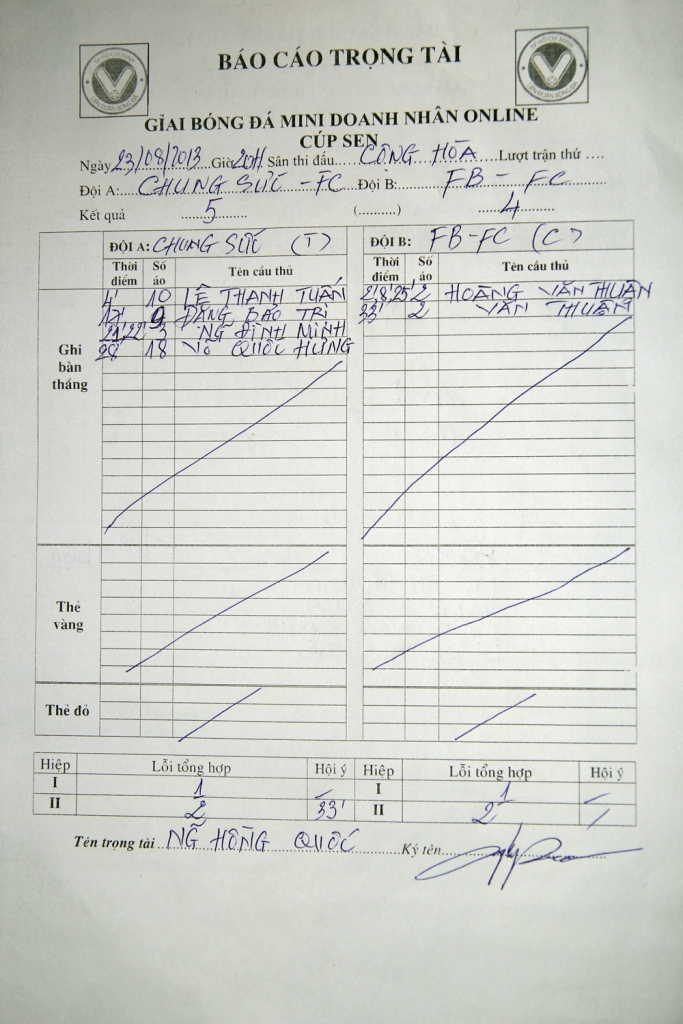 BÁO CÁO TRỌNG TÀI
GIẢI BÓNG ĐÁ MINI DOANH NHÂN ONLINE
CÚP SEN
Ngày 23/08/2013 Giờ 20H Sân thi đấu CÔNG HÒA Lượt trận thứ ....
Đội A: CHUNG SỨC - FC Đội B: FB - FC
Kết quả 5 (..........) 4
ĐỘI A: CHUNG SỨC (T) ĐỘI B: FB-FC (C)
Thời điểm Số áo Tên cầu thủ Thời điểm Số áo Tên cầu thủ
Ghi bàn thắng
4' 10 LÊ THANH TUẤN 2',8',25' 2 HOÀNG VĂN THUẬN
9 ĐẶNG BẢO TRÌ 33' 2 VĂN THUẬN
21',22' 3 NG ĐÌNH MINH
28' 18 VÕ QUỐC HƯNG
Thẻ vàng
Thẻ đỏ
Hiệp Lỗi tổng hợp Hội ý Hiệp Lỗi tổng hợp Hội ý
I 1 I 1
II 2 33' II 2
Tên trọng tài NG HỒNG QUỐC Ký tên